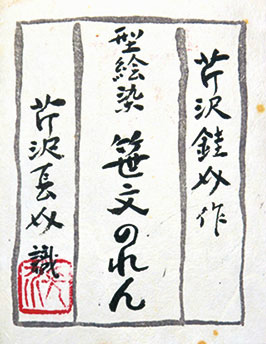 芹沢銈介作
型絵染 笹文のれん
芹沢長介識